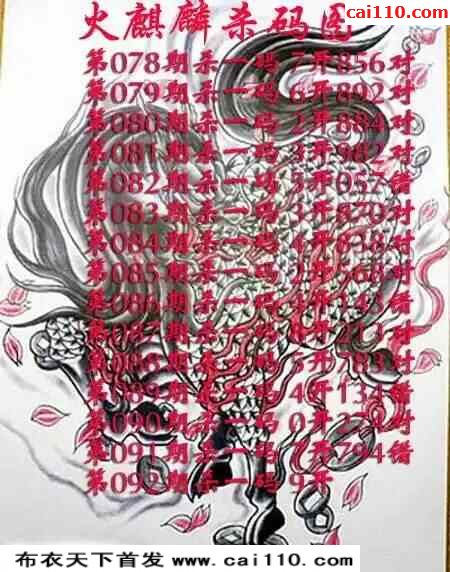 cai110.com
火麒麟杀码图
第078期杀一码 7开856对
第079期杀一码 6开892对
第080期杀一码 2开884对
第081期杀一码 3开982对
第082期杀一码 5开057错
第083期杀一码 3开870对
第084期杀一码 4开 对
第085期杀一码 开568对
第086期杀一码 4开143错
第087期杀一码 开 对
第088期杀一码 5开783对
第089期杀一码 4开134错
第090期杀一码 0开 对
第091期杀一码 7开794错
第092期杀一码 9开
布衣天下首发 www.cai110.com